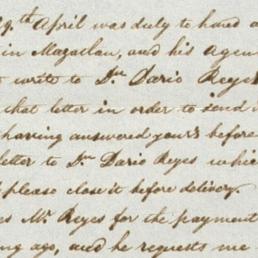 9th April was duly to hand a
in Mazatlan, and his Agen
write to Dn Dario Reyes
that letter in order to send
having answered yours before
letter to Dn Dario Reyes whic
please close it before delivery
es Mr Reyes for the payment
ng ago, and he requests me